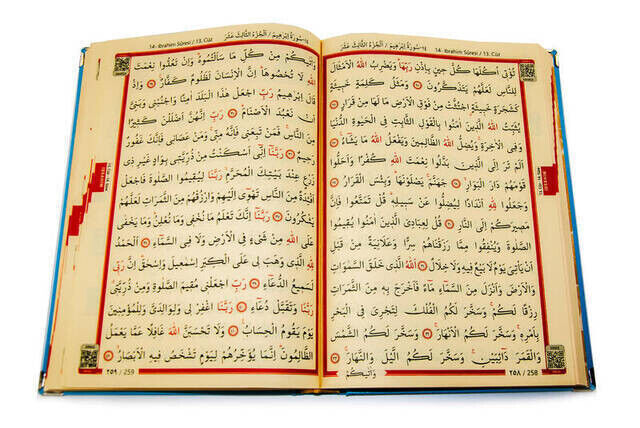 14- İbrahim Sûresi / 13. Cüz ١٤-سُورَةُ اِبْرٰهِيمَ / اَلْجُزْءُ الثَّالِثَ عَشَرَ
تُؤْتِى اُكُلَهَا كُلَّ حِينٍ بِاِذْنِ رَبِّهَا وَيَضْرِبُ اللّٰهُ الْاَمْثَالَ
لِلنَّاسِ لَعَلَّهُمْ يَتَذَكَّرُونَ ۝ وَمَثَلُ كَلِمَةٍ خَبِيثَةٍ
كَشَجَرَةٍ خَبِيثَةٍ اجْتُثَّتْ مِنْ فَوْقِ الْاَرْضِ مَا لَهَا مِنْ قَرَارٍ ۝
يُثَبِّتُ اللّٰهُ الَّذِينَ اٰمَنُوا بِالْقَوْلِ الثَّابِتِ فِى الْحَيٰوةِ الدُّنْيَا
وَفِى الْاٰخِرَةِ وَيُضِلُّ اللّٰهُ الظَّالِمِينَ وَيَفْعَلُ اللّٰهُ مَا يَشَاءُ ۝
اَلَمْ تَرَ اِلَى الَّذِينَ بَدَّلُوا نِعْمَتَ اللّٰهِ كُفْرًا وَاَحَلُّوا
قَوْمَهُمْ دَارَ الْبَوَارِ ۝ جَهَنَّمَ يَصْلَوْنَهَا وَبِئْسَ الْقَرَارُ ۝
وَجَعَلُوا لِلّٰهِ اَنْدَادًا لِيُضِلُّوا عَنْ سَبِيلِهِ قُلْ تَمَتَّعُوا فَاِنَّ
مَصِيرَكُمْ اِلَى النَّارِ ۝ قُلْ لِعِبَادِىَ الَّذِينَ اٰمَنُوا يُقِيمُوا
الصَّلٰوةَ وَيُنْفِقُوا مِمَّا رَزَقْنَاهُمْ سِرًّا وَعَلَانِيَةً مِنْ قَبْلِ
اَنْ يَاْتِىَ يَوْمٌ لَا بَيْعٌ فِيهِ وَلَا خِلَالٌ ۝ اَللّٰهُ الَّذِى خَلَقَ السَّمٰوَاتِ
وَالْاَرْضَ وَاَنْزَلَ مِنَ السَّمَاءِ مَاءً فَاَخْرَجَ بِهِ مِنَ الثَّمَرَاتِ
رِزْقًا لَكُمْ وَسَخَّرَ لَكُمُ الْفُلْكَ لِتَجْرِىَ فِى الْبَحْرِ
بِاَمْرِهِ وَسَخَّرَ لَكُمُ الْاَنْهَارَ ۝ وَسَخَّرَ لَكُمُ الشَّمْسَ
وَالْقَمَرَ دَائِبَيْنِ وَسَخَّرَ لَكُمُ الَّيْلَ وَالنَّهَارَ ۝
وَاٰتٰيكُمْ
٢٥٨ / 258
14- İbrahim Sûresi / 13. Cüz ١٤-سُورَةُ اِبْرٰهِيمَ / اَلْجُزْءُ الثَّالِثَ عَشَرَ
وَاٰتٰيكُمْ مِنْ كُلِّ مَا سَاَلْتُمُوهُ وَاِنْ تَعُدُّوا نِعْمَتَ
اللّٰهِ لَا تُحْصُوهَا اِنَّ الْاِنْسَانَ لَظَلُومٌ كَفَّارٌ ۝ وَاِذْ
قَالَ اِبْرٰهِيمُ رَبِّ اجْعَلْ هٰذَا الْبَلَدَ اٰمِنًا وَاجْنُبْنِى وَبَنِىَّ
اَنْ نَعْبُدَ الْاَصْنَامَ ۝ رَبِّ اِنَّهُنَّ اَضْلَلْنَ كَثِيرًا
مِنَ النَّاسِ فَمَنْ تَبِعَنِى فَاِنَّهُ مِنِّى وَمَنْ عَصَانِى فَاِنَّكَ غَفُورٌ
رَحِيمٌ ۝ رَبَّنَا اِنِّى اَسْكَنْتُ مِنْ ذُرِّيَّتِى بِوَادٍ غَيْرِ ذِى
زَرْعٍ عِنْدَ بَيْتِكَ الْمُحَرَّمِ رَبَّنَا لِيُقِيمُوا الصَّلٰوةَ فَاجْعَلْ
اَفْئِدَةً مِنَ النَّاسِ تَهْوِى اِلَيْهِمْ وَارْزُقْهُمْ مِنَ الثَّمَرَاتِ لَعَلَّهُمْ
يَشْكُرُونَ ۝ رَبَّنَا اِنَّكَ تَعْلَمُ مَا نُخْفِى وَمَا نُعْلِنُ وَمَا يَخْفٰى
عَلَى اللّٰهِ مِنْ شَىْءٍ فِى الْاَرْضِ وَلَا فِى السَّمَاءِ ۝ اَلْحَمْدُ
لِلّٰهِ الَّذِى وَهَبَ لِى عَلَى الْكِبَرِ اِسْمٰعِيلَ وَاِسْحٰقَ اِنَّ رَبِّى
لَسَمِيعُ الدُّعَاءِ ۝ رَبِّ اجْعَلْنِى مُقِيمَ الصَّلٰوةِ وَمِنْ ذُرِّيَّتِى
رَبَّنَا وَتَقَبَّلْ دُعَاءِ ۝ رَبَّنَا اغْفِرْ لِى وَلِوَالِدَىَّ وَلِلْمُؤْمِنِينَ
يَوْمَ يَقُومُ الْحِسَابُ ۝ وَلَا تَحْسَبَنَّ اللّٰهَ غَافِلًا عَمَّا يَعْمَلُ
الظَّالِمُونَ اِنَّمَا يُؤَخِّرُهُمْ لِيَوْمٍ تَشْخَصُ فِيهِ الْاَبْصَارُ ۝
٢٥٩ / 259